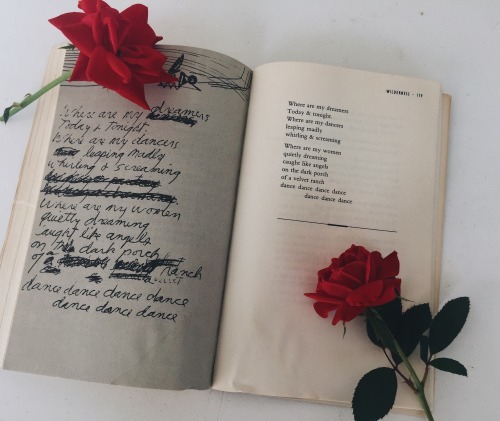 Where are my dreamers
Today & tonight.
Where are my dancers
leaping madly
whirling & screaming
Where are my women
quietly dreaming
caught like angels
on the dark porch
of a ranch
dance dance dance dance
dance dance dance
WILDERNESS · 179
Where are my dreamers
Today & tonight.
Where are my dancers
leaping madly
whirling & screaming
Where are my women
quietly dreaming
caught like angels
on the dark porch
of a velvet ranch
dance dance dance dance
dance dance dance